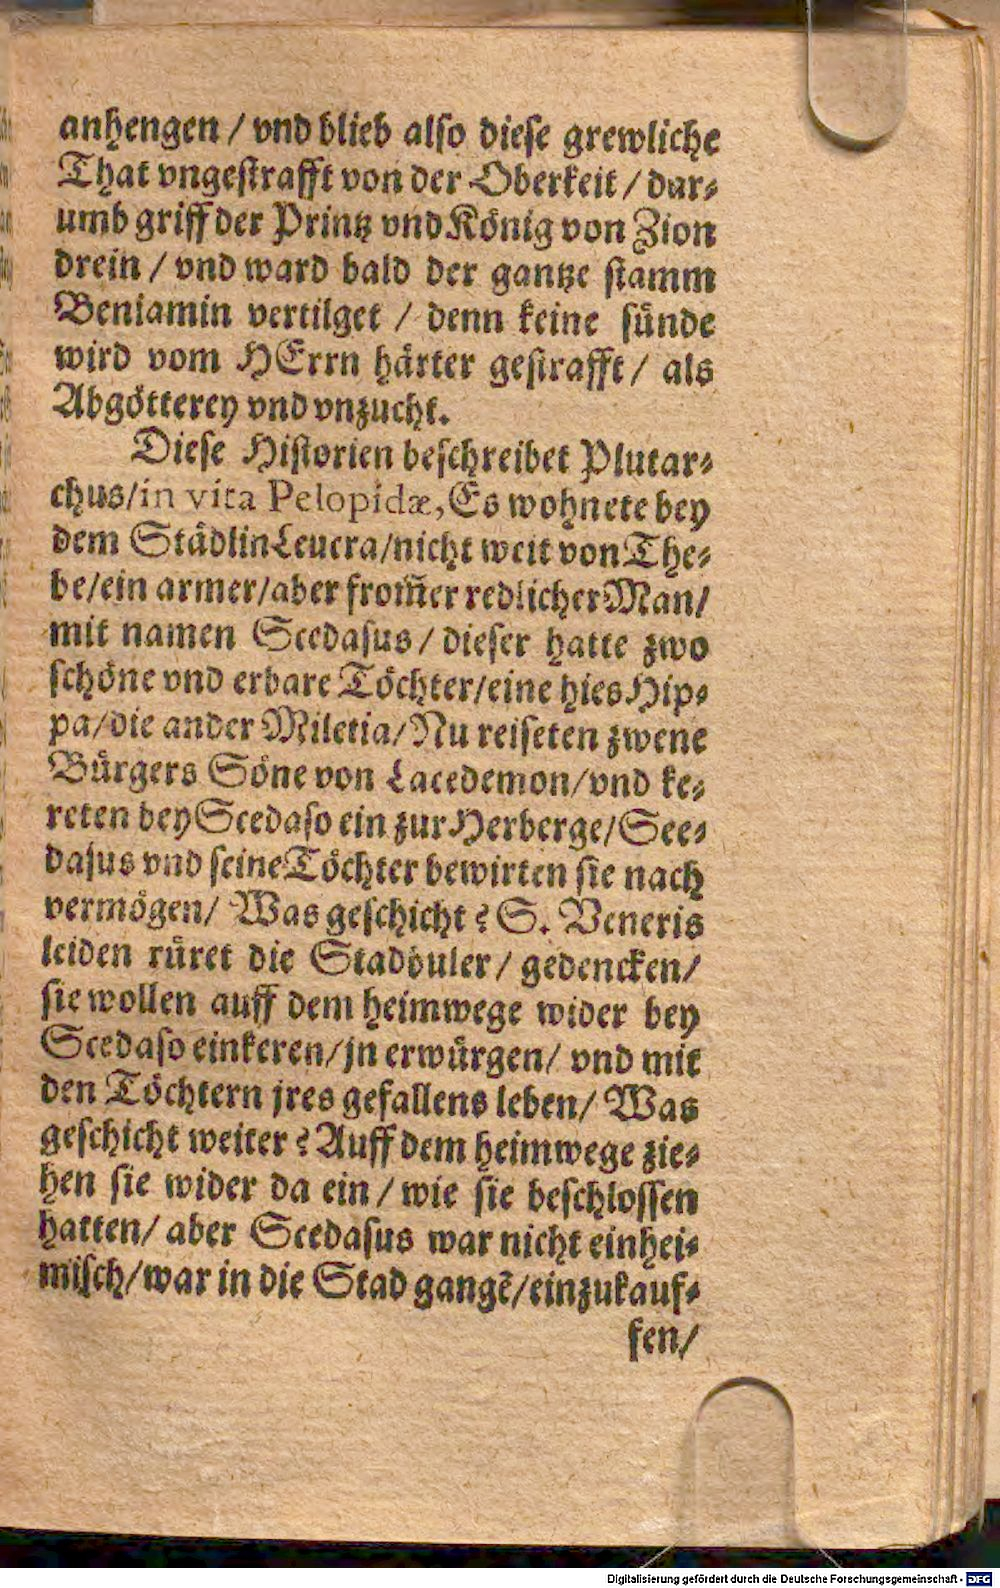 anhengen / vnd blieb also diese grewliche
That vngestrafft von der Oberkeit / dar⸗
umb griff der Printz vnd König von Zion
drein / vnd ward bald der gantze stamm
Beniamin vertilget / denn keine sünde
wird vom HErrn härter gestrafft / als
Abgötterey vnd vnzucht.
Diese Historien beschreibet Plutar⸗
chus/in vita Pelopidæ, Es wohnete bey
dem Städlin Leucra/nicht weit von The⸗
be/ein armer/aber from̃er redlicher Man/
mit namen Scedasus / dieser hatte zwo
schöne vnd erbare Töchter/eine hies Hip⸗
pa/die ander Miletia/Nu reiseten zwene
Bürgers Söne von Lacedemon/vnd ke⸗
reten bey Scedaso ein zur Herberge/See⸗
dasus vnd seine Töchter bewirten sie nach
vermögen/ Was geschicht? S. Veneris
leiden rüret die Stadbuler / gedencken/
sie wollen auff dem heimwege wider bey
Scedaso einkeren/jn erwürgen/ vnd mit
den Töchtern jres gefallens leben/ Was
geschicht weiter? Auff dem heimwege zie⸗
hen sie wider da ein / wie sie beschlossen
hatten/ aber Scedasus war nicht einhei⸗
misch/war in die Stad gangẽ/einzukauf⸗
fen/
Digitalisierung gefördert durch die Deutsche Forschungsgemeinschaft - DFG